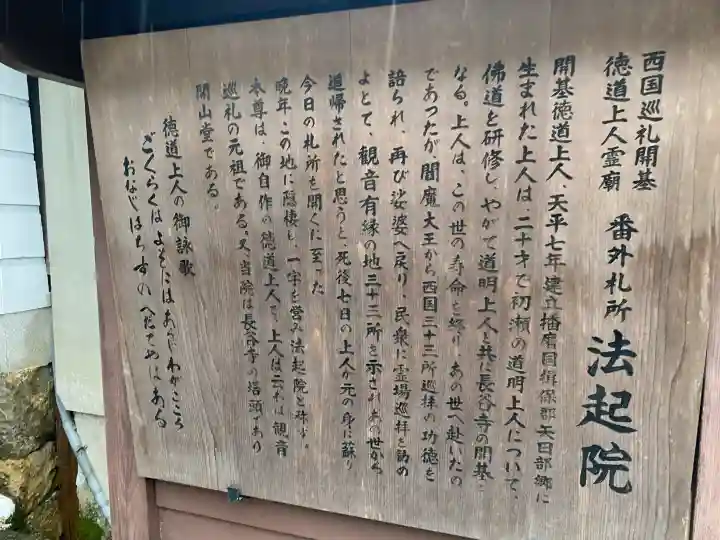 西国巡礼開基
徳道上人霊廟　番外札所　法起院
開基徳道上人、天平七年建立播磨国揖保郡矢田部郷に
生まれた上人は、二十才で初瀬の道明上人について、
佛道を研修し、やがて道明上人と共に長谷寺の開基と
なる。上人は、この世の寿命を終り、あの世へ赴いたの
であったが閻魔大王から西国三十三所巡拝の功徳を
語られ、再び娑婆へ戻り、民衆に霊場巡拝を勧め
よとて、観音有縁の地三十三所を示されあの世から
追帰されたと思うと、死後七日の上人が元の身に蘇り
今日の札所を開くに至った
晩年この地に隠棲し、一宇を営み法起院と称す。
本尊は、御自作の徳道上人で、上人は云わば観音
巡礼の元祖である。又、当院は長谷寺の塔頭であり
開山堂である。
徳道上人の御詠歌
ごくらくは よそにはあらじ わがこころ
おなじはちすの へだてやはある